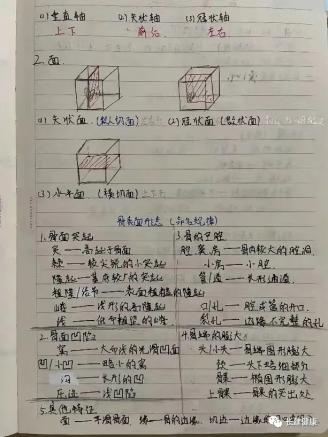 (1) 垂直轴 (2) 矢状轴 (3) 冠状轴
上下 前后 左右
2. 面
(1) 矢状面 (2) 冠状面
(3) 水平面 (横切面)
骨表面形态 (命名规律)
1. 骨面突起 3. 骨的空腔
突——高起于骨面 腔、窦、房——骨内较大的腔洞
棘——较尖锐的小突起 小房——小腔
隆起——基底较广的突起 管/道——长形通道
粗隆/结节——表面粗糙的隆起
嵴——线形的高隆起 口/孔——腔或管的开口
线——低而粗涩的嵴 裂孔——边缘不完整的孔
2. 骨面凹陷 4. 骨端的膨大
窝——大而浅的光滑凹面 头/小头——骨端圆形膨大
凹/小凹——略小的窝 颈——头下略细部分
沟——长形的凹 髁——椭圆形膨大
压迹——浅的凹陷 上髁——髁的突出处
5. 其他特征
面——平滑骨面 缘——骨的边缘 切迹——边缘
长舒健康